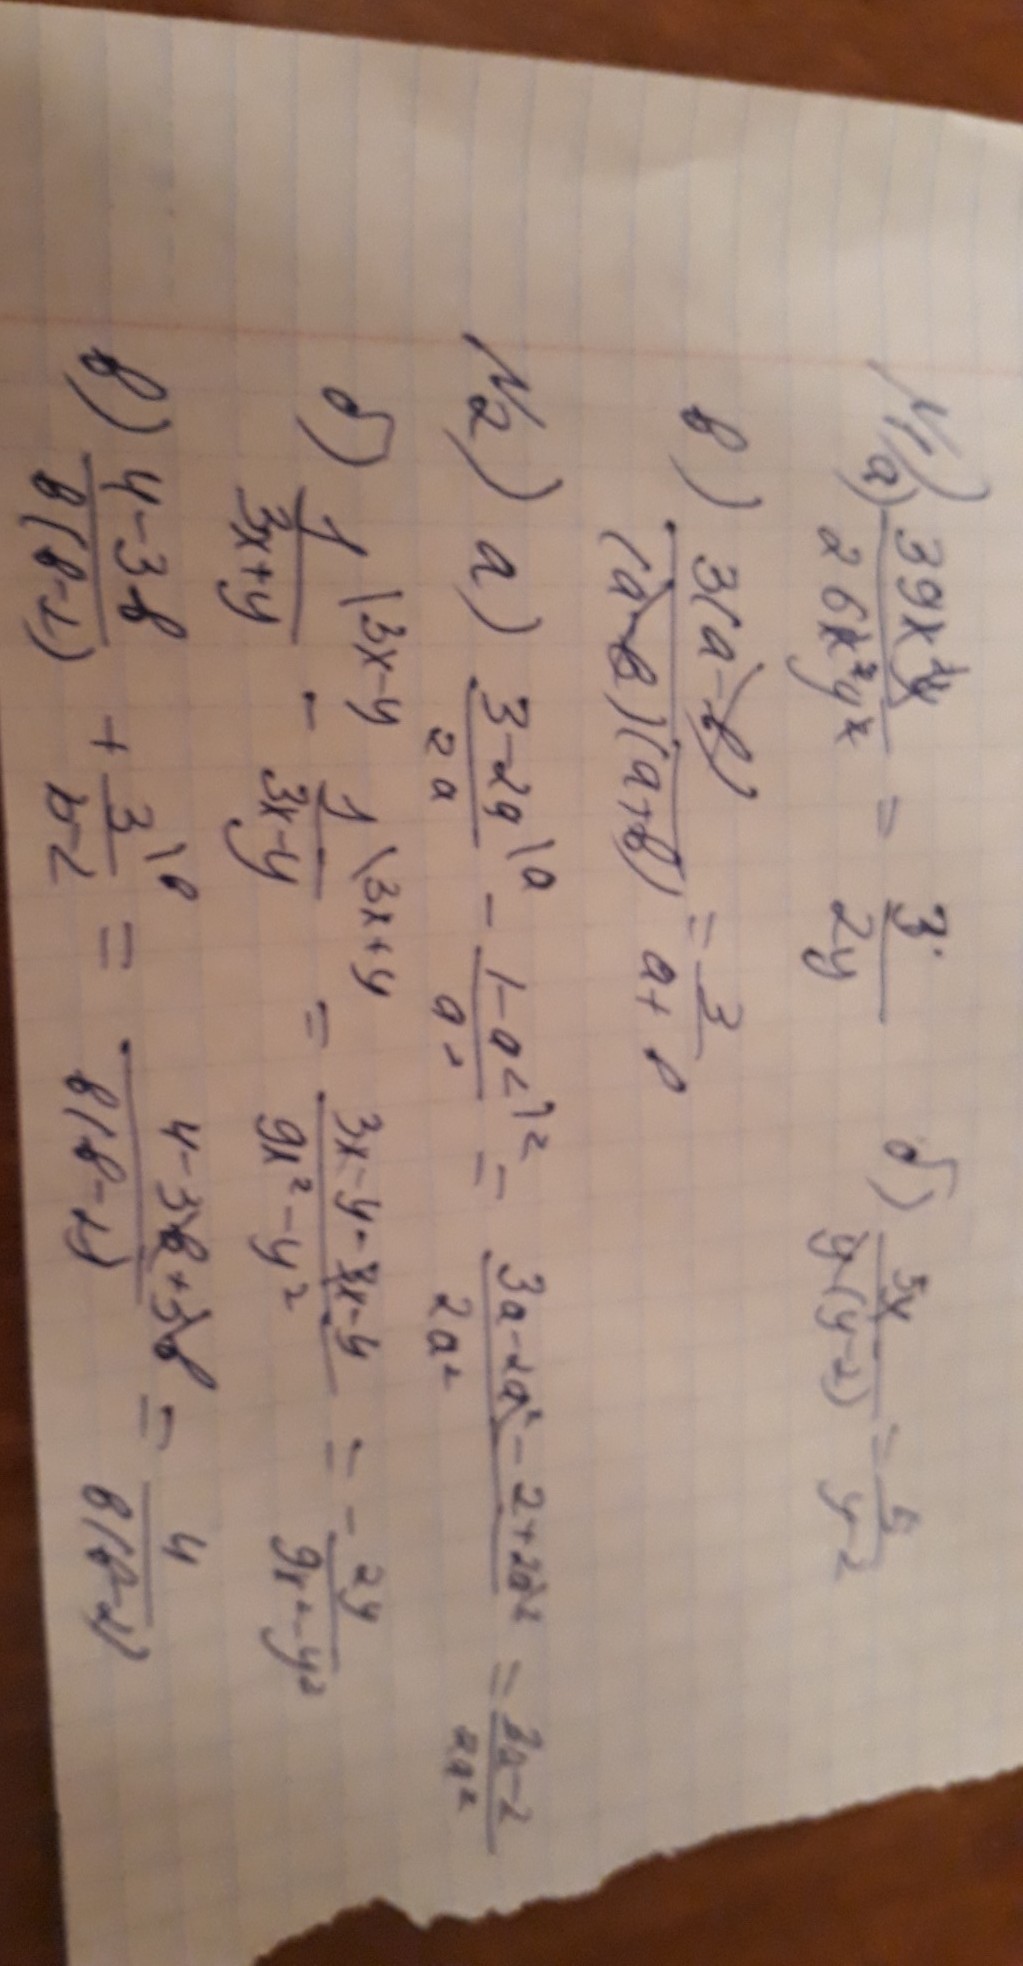 №1) а) 39x³y / 26x³y² = 3 / 2y б) 5y / y(y-2) = 5 / y-2
в) 3(a-b) / (a-b)(a+b) = 3 / a+b
№2) а) 3-2a\a / 2a - 1-a²\2 / a² = 3a-2a²-2+2a² / 2a² = 3a-2 / 2a²
б) 1\3x-y / 3x+y - 1\3x+y / 3x-y = 3x-y-3x-y / 9x²-y² = - 2y / 9x²-y²
в) 4-3b / b(b-2) + 3\b / b-2 = 4-3b+3b / b(b-2) = 4 / b(b-2)